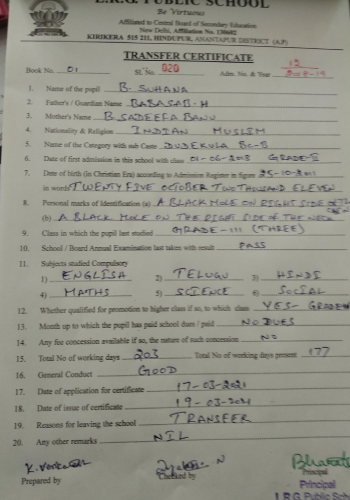 L.R.G. PUBLIC SCHOOL
Be Virtuous
Affiliated to Central Board of Secondary Education
New Delhi, Affiliation No. 130602
KIRIKERA 515 211, HINDUPUR, ANANTAPUR DISTRICT (A.P)
TRANSFER CERTIFICATE
Book No. 01 Sl. No. 020 Adm. No. & Year 12 2018-19
1. Name of the pupil B. SUHANA
2. Father's / Guardian Name BABASAB. H
3. Mother's Name B SADEEFA BANU
4. Nationality & Religion INDIAN MUSLIM
5. Name of the Category with sub Caste DUDEKULA BC-B
6. Date of first admission in this school with class 01-06-2018 GRADE-I
7. Date of birth (in Christian Era) according to Admission Register in figure 25-10-2011
in words TWENTY FIVE OCTOBER TWO THOUSAND ELEVEN
8. Personal marks of Identification (a) A BLACK MOLE ON RIGHT SIDE OF THE
(b) A BLACK MOLE ON THE RIGHT SIDE OF THE NECK
9. Class in which the pupil last studied GRADE-III (THREE)
10. School / Board Annual Examination last taken with result PASS
11. Subjects studied Compulsory
1) ENGLISH 2) TELUGU 3) HINDI
4) MATHS 5) SCIENCE 6) SOCIAL
12. Whether qualified for promotion to higher class if so, to which class YES- GRADE
13. Month up to which the pupil has paid school dues / paid NO DUES
14. Any fee concession availed if so, the nature of such concession NO
15. Total No of working days 203 Total No of working days present 177
16. General Conduct GOOD
17. Date of application for certificate 17-03-2021
18. Date of issue of certificate 19-03-2021
19. Reasons for leaving the school TRANSFER
20. Any other remarks NIL
Prepared by Checked by Principal
Principal
L R G Public School